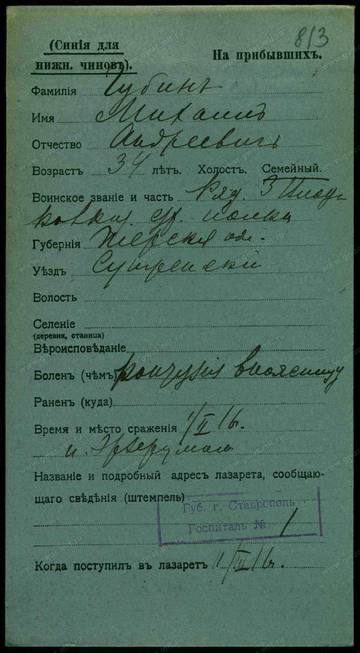 8/3
(Синія для
нижн. чиновъ).
На прибывшихъ.
Фамилія Губинъ
Имя Михаилъ
Отчество Андреевичъ
Возрастъ 34 лѣтъ. Холостъ. Семейный.
Воинское званіе и часть Ряд. 3
полка
Губернія Терская обл.
Уѣздъ Сунженскій
Волость
Селеніе
(деревня, станица)
Вѣроисповѣданіе
Боленъ (чѣмъ) контузія в поясницу
Раненъ (куда)
Время и мѣсто сраженія 1/II 16.
Эрзерумом
Названіе и подробный адресъ лазарета, сообщаю-
щаго свѣдѣнія (штемпель)
Губ. г. Ставрополь
Госпиталь № 1
Когда поступилъ въ лазаретъ 11/III 16.